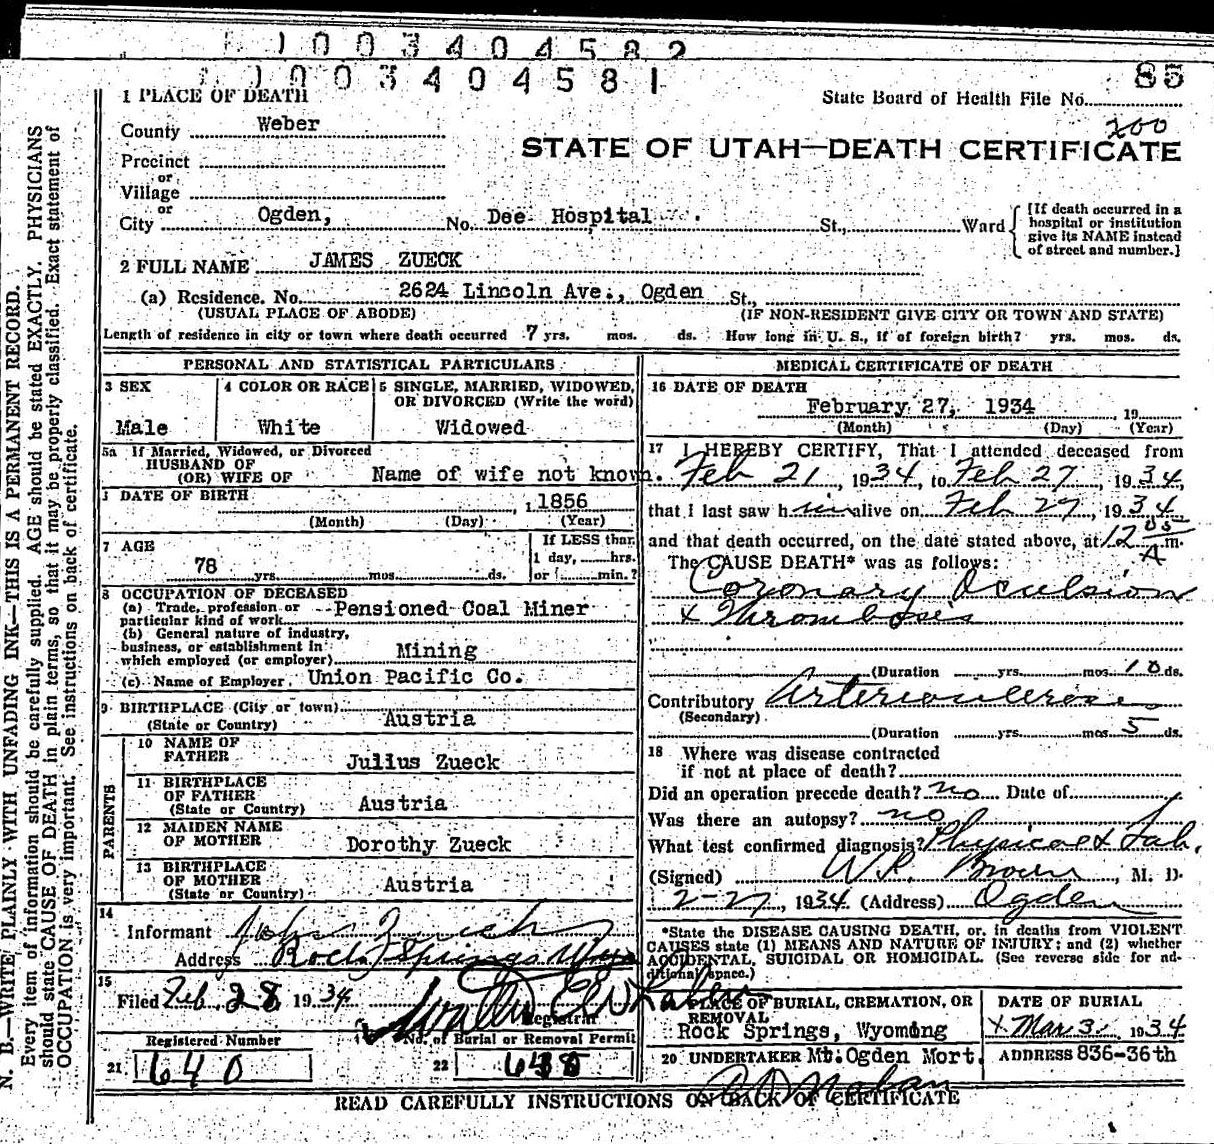 1003404582
1003404581
85
1 PLACE OF DEATH
State Board of Health File No.
200
County Weber
STATE OF UTAH—DEATH CERTIFICATE
Precinct
or
Village
or
City Ogden, No. Dee Hospital St., Ward
[If death occurred in a
hospital or institution
give its NAME instead
of street and number.]
2 FULL NAME JAMES ZUECK
(a) Residence. No. 2624 Lincoln Ave., Ogden St.,
(USUAL PLACE OF ABODE) (IF NON-RESIDENT GIVE CITY OR TOWN AND STATE)
Length of residence in city or town where death occurred 7 yrs. mos. ds. How long in U. S., if of foreign birth? yrs. mos. ds.
PERSONAL AND STATISTICAL PARTICULARS
3 SEX
Male
4 COLOR OR RACE
White
5 SINGLE, MARRIED, WIDOWED,
OR DIVORCED (Write the word)
Widowed
5a If Married, Widowed, or Divorced
HUSBAND OF
(OR) WIFE OF Name of wife not known.
DATE OF BIRTH
1856
(Month) (Day) (Year)
7 AGE
78 yrs. mos. ds.
If LESS than
1 day, hrs.
or min.?
8 OCCUPATION OF DECEASED
(a) Trade, profession or
particular kind of work Pensioned Coal Miner
(b) General nature of industry,
business, or establishment in
which employed (or employer) Mining
(c) Name of Employer Union Pacific Co.
9 BIRTHPLACE (City or town)
(State or Country) Austria
PARENTS
10 NAME OF
FATHER Julius Zueck
11 BIRTHPLACE
OF FATHER
(State or Country) Austria
12 MAIDEN NAME
OF MOTHER Dorothy Zueck
13 BIRTHPLACE
OF MOTHER
(State or Country) Austria
14
Informant John Zueck
Address Rock Springs Wyo
15
Filed Feb 28, 1934
Registrar
Registered Number
21 640
No. of Burial or Removal Permit
22 638
MEDICAL CERTIFICATE OF DEATH
16 DATE OF DEATH
February 27, 1934 19
(Month) (Day) (Year)
17 I HEREBY CERTIFY, That I attended deceased from
Feb 21, 1934, to Feb 27, 1934,
that I last saw him alive on Feb 27, 1934
and that death occurred, on the date stated above, at 12 05 A m.
The CAUSE DEATH* was as follows:
Coronary Oculsion
& Thrombosis
(Duration yrs. mos 10 ds.
Contributory
(Secondary)
(Duration yrs. mos 5 ds.
18 Where was disease contracted
if not at place of death?
Did an operation precede death? no Date of
Was there an autopsy? no
What test confirmed diagnosis? Physical & Lab.
(Signed) W.R. Brown, M. D.
2-27, 1934 (Address) Ogden
*State the DISEASE CAUSING DEATH, or, in deaths from VIOLENT
CAUSES state (1) MEANS AND NATURE OF INJURY; and (2) whether
ACCIDENTAL, SUICIDAL OR HOMICIDAL. (See reverse side for ad-
ditional space.)
PLACE OF BURIAL, CREMATION, OR
REMOVAL
Rock Springs, Wyoming
DATE OF BURIAL
Mar 3, 1934
20 UNDERTAKER Mt. Ogden Mort.
ADDRESS 836-36th
READ CAREFULLY INSTRUCTIONS ON BACK OF CERTIFICATE
N. B.—WRITE PLAINLY WITH UNFADING INK—THIS IS A PERMANENT RECORD.
Every item of information should be carefully supplied. AGE should be stated EXACTLY. PHYSICIANS
should state CAUSE OF DEATH in plain terms, so that it may be properly classified. Exact statement of
OCCUPATION is very important. See instructions on back of certificate.